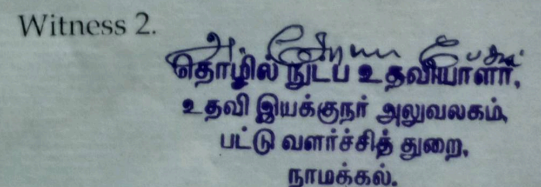 Witness 2.
தொழில் நுட்ப உதவியாளர்,
உதவி இயக்குநர் அலுவலகம்,
பட்டு வளர்ச்சித் துறை,
நாமக்கல்.